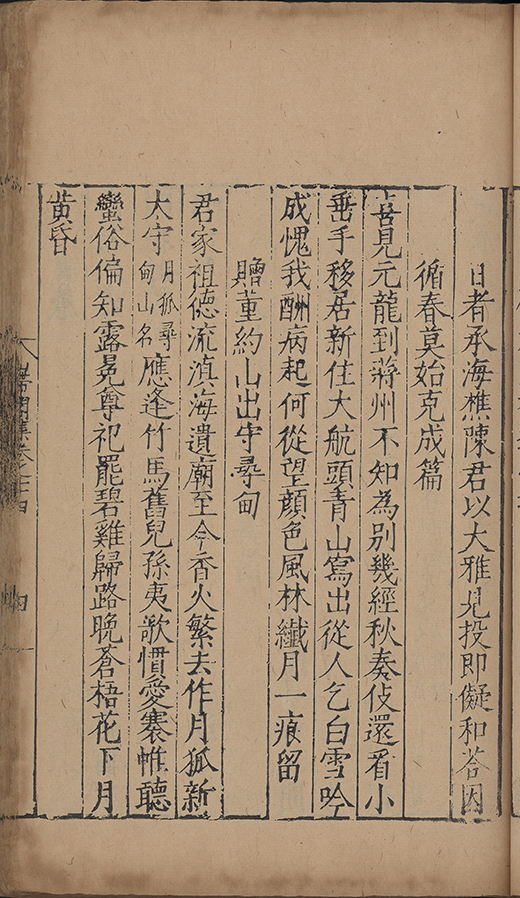 日者承海樵陳君以大雅見投即儗和荅因
循春莫始克成篇
喜見元龍到蔣州不知為別幾經秋奏伎還看小
垂手移居新住大航頭青山寫出從人乞白雪吟
成愧我酬病起何從望顔色風林纖月一痕留
贈董約山出守尋甸
君家祖德流滇海遺廟至今香火繁去作月狐新
太守月狐尋甸山名應逢竹馬舊兒孫夷歌慣愛褰帷聽
蠻俗偏知露冕尊祀罷碧雞歸路晩蒼梧花下月
黄昏